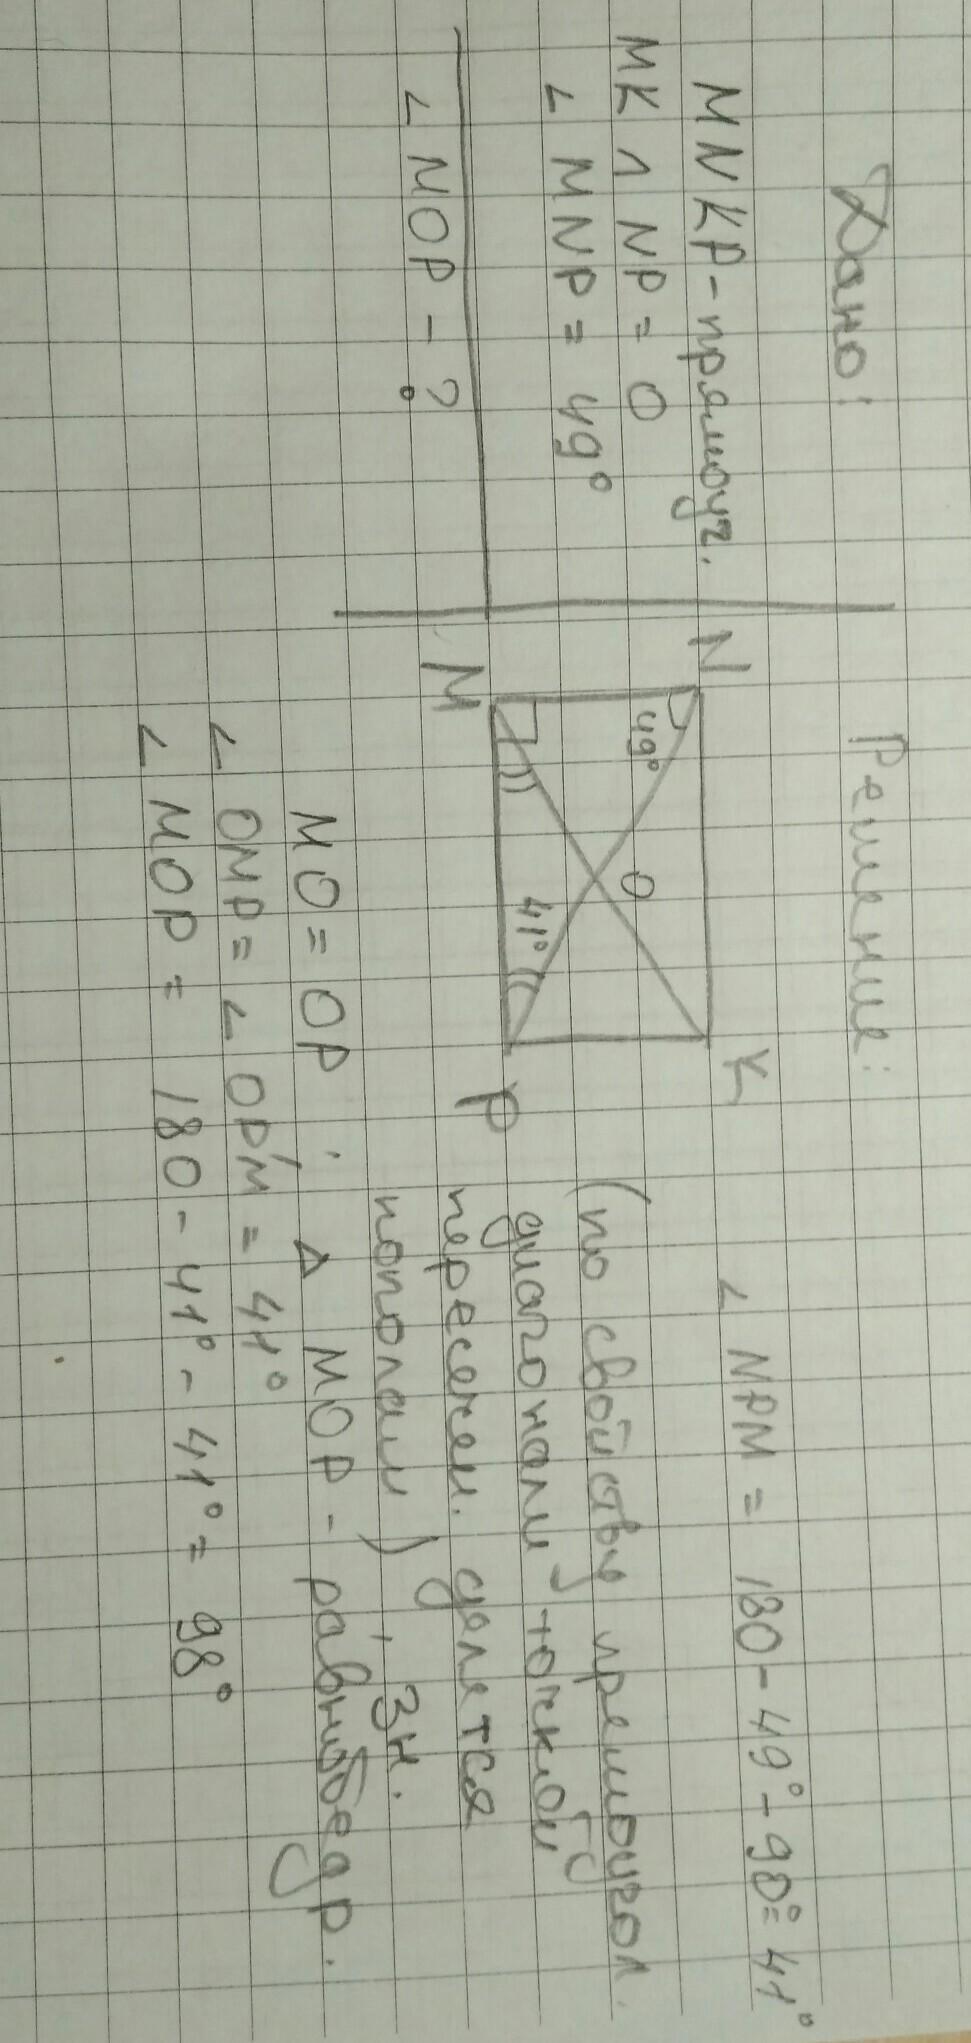 Дано:
MNKP-прямоуг.
MK ∩ NP = O
∠ MNP = 49°
∠ MOP - ?
Решение:
N
K
49°
O
41°
M
P
∠ NPM = 180 - 49° - 90° = 41°
(по свойству прямоугол.
диагонали точкой
пересечен. делятся
пополам), зн.
MO = OP, Δ MOP - равнобедр.
∠ OMP = ∠ OPM = 41°
∠ MOP = 180 - 41° - 41° = 98°